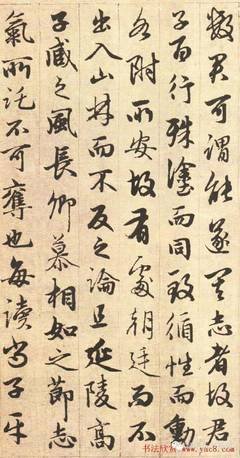 数君可谓能遂其志者故君
子百行殊塗而同致循性而動
各附所安故有處朝廷而不
出入山林而不反之論且延陵高
子臧之風長卿慕相如之節志
氣所託不可奪也每讀尚子平
书法欣赏
www.yac8.com